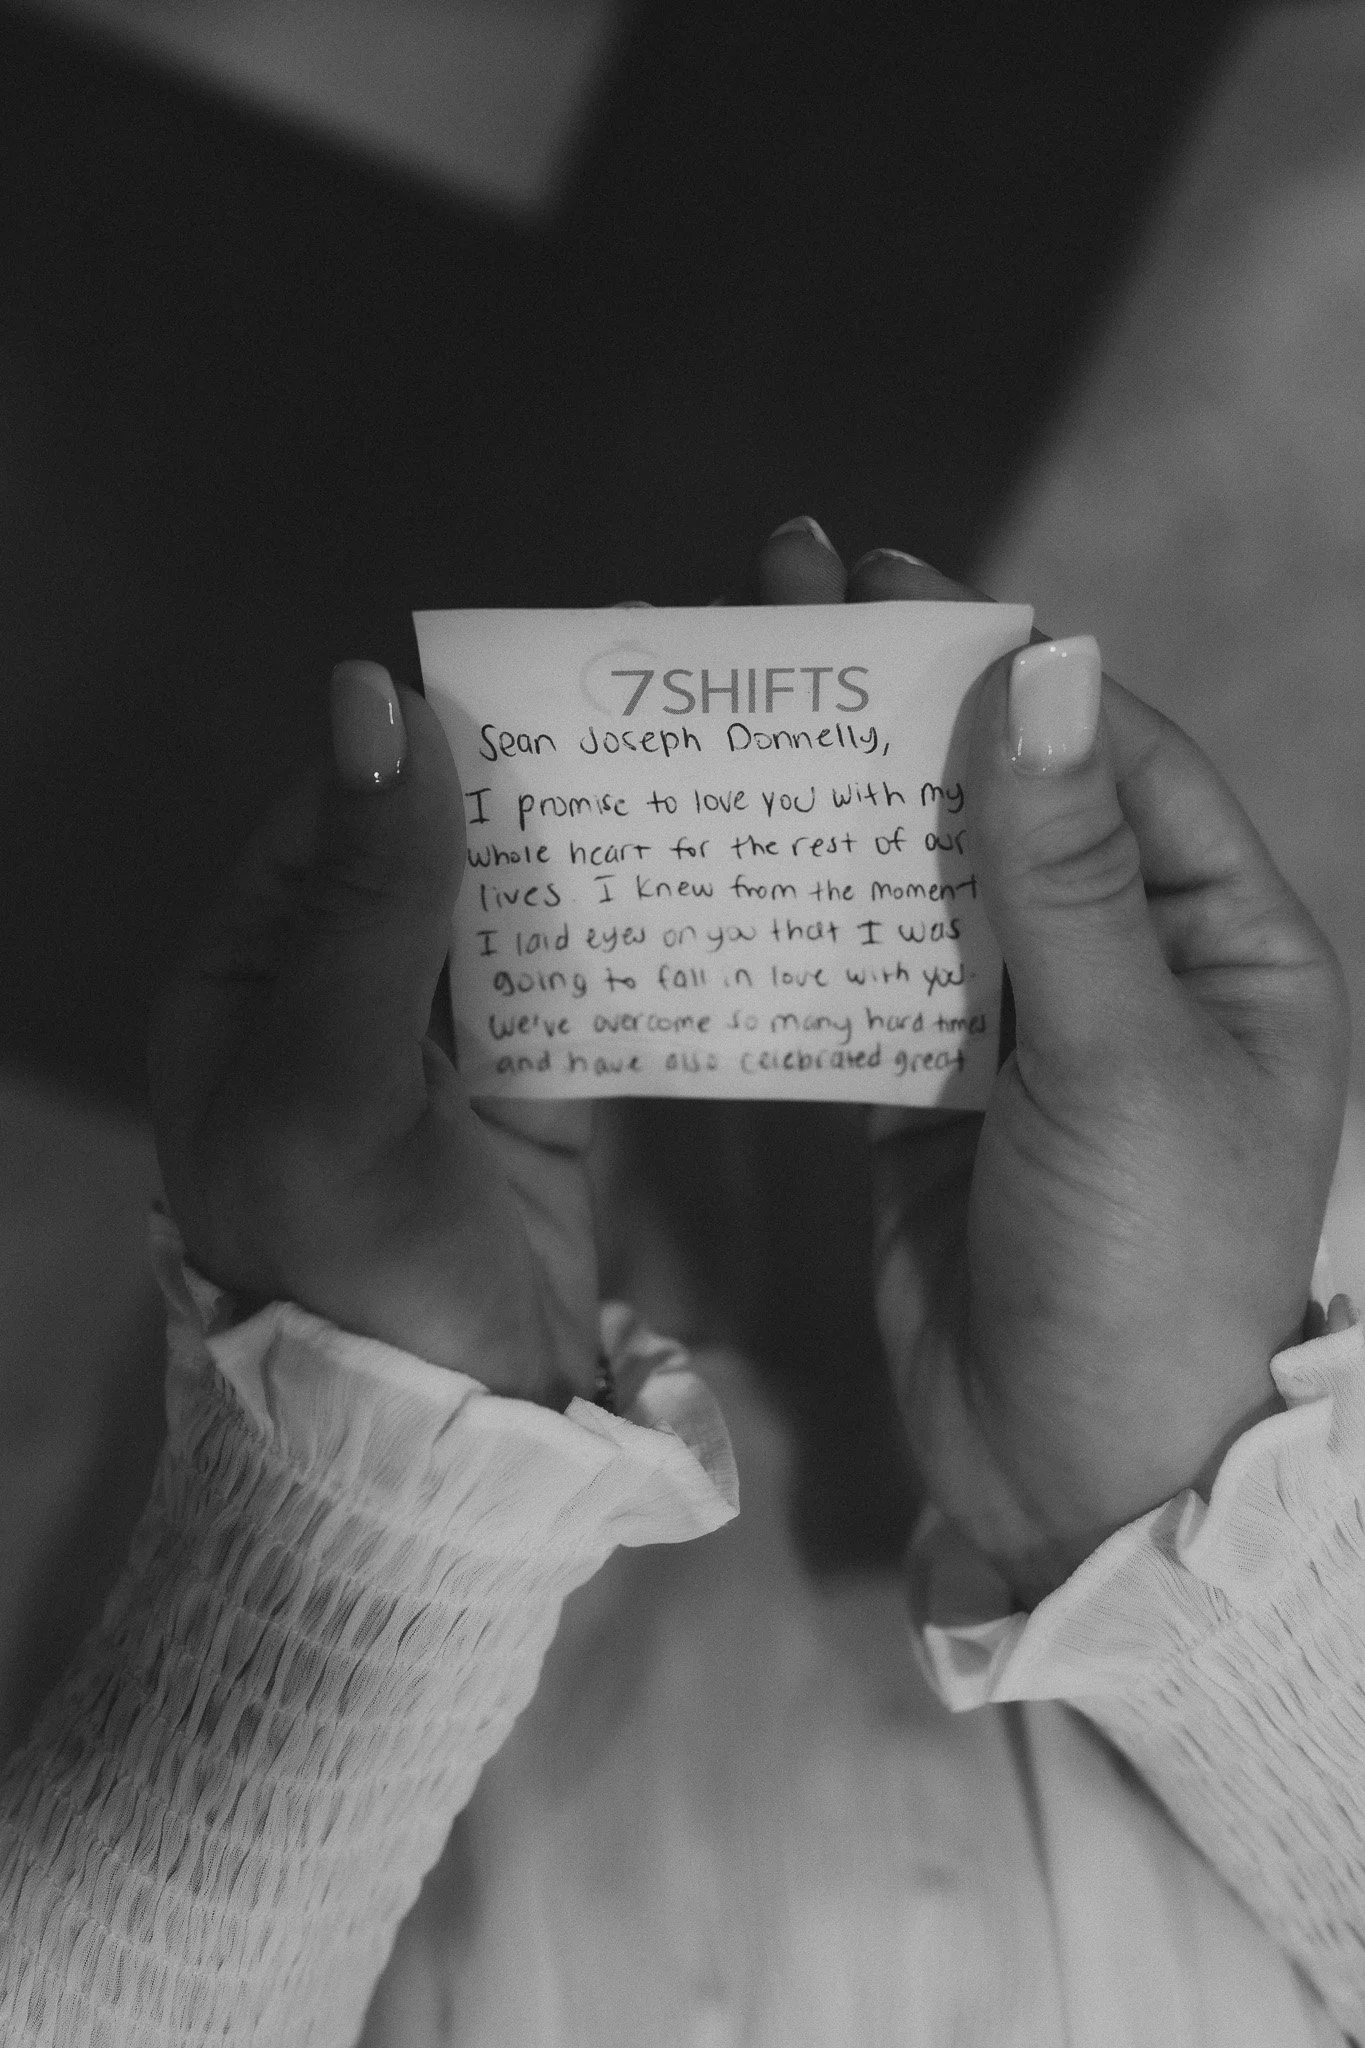 7SHIFTS
Sean Joseph Donnelly,
I promise to love you with my
whole heart for the rest of our
lives. I knew from the moment
I laid eyes on you that I was
going to fall in love with you.
we've overcome so many hard times
and have also celebrated great